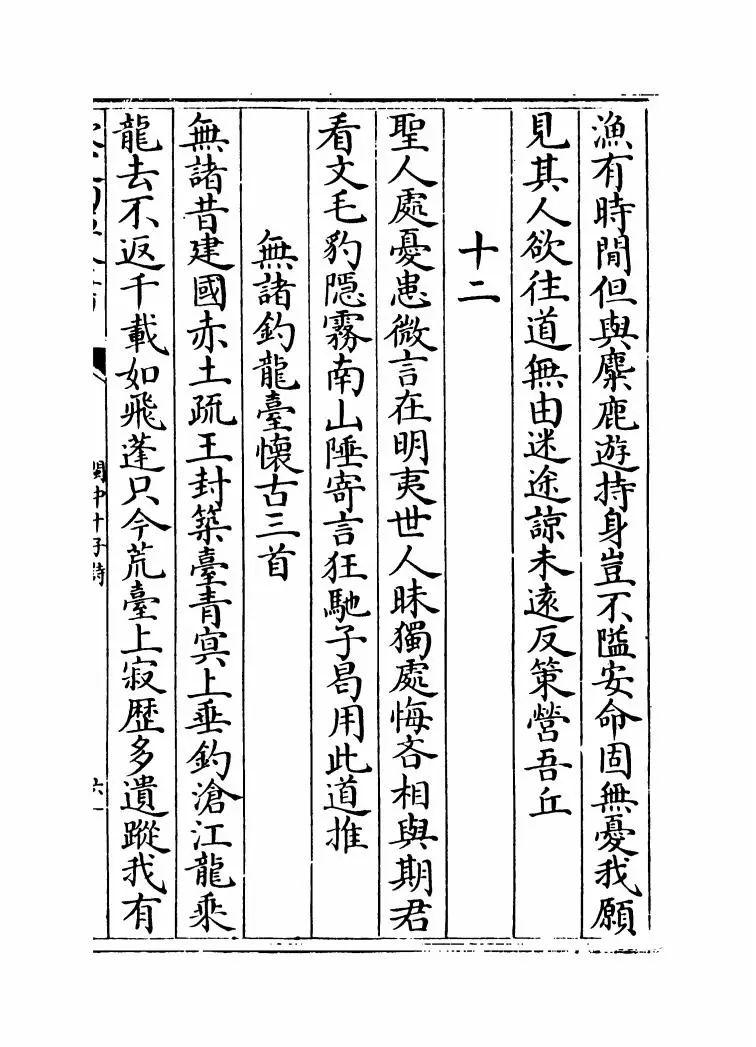 漁有時間但與麋鹿遊持身豈不隘安命固無憂我願
見其人欲往道無由迷途諒未遠反策營吾丘
十二
聖人處憂患微言在明夷世人昧獨處悔吝相與期君
看文毛豹隠霧南山陲寄言狂馳子曷用此道推
無諸釣龍臺懷古三首
無諸昔建國赤土疏王封築臺青㝠上垂釣滄江龍乘
龍去不返千載如飛蓬只今荒臺上寂歴多遺蹤我有
閩中十子詩